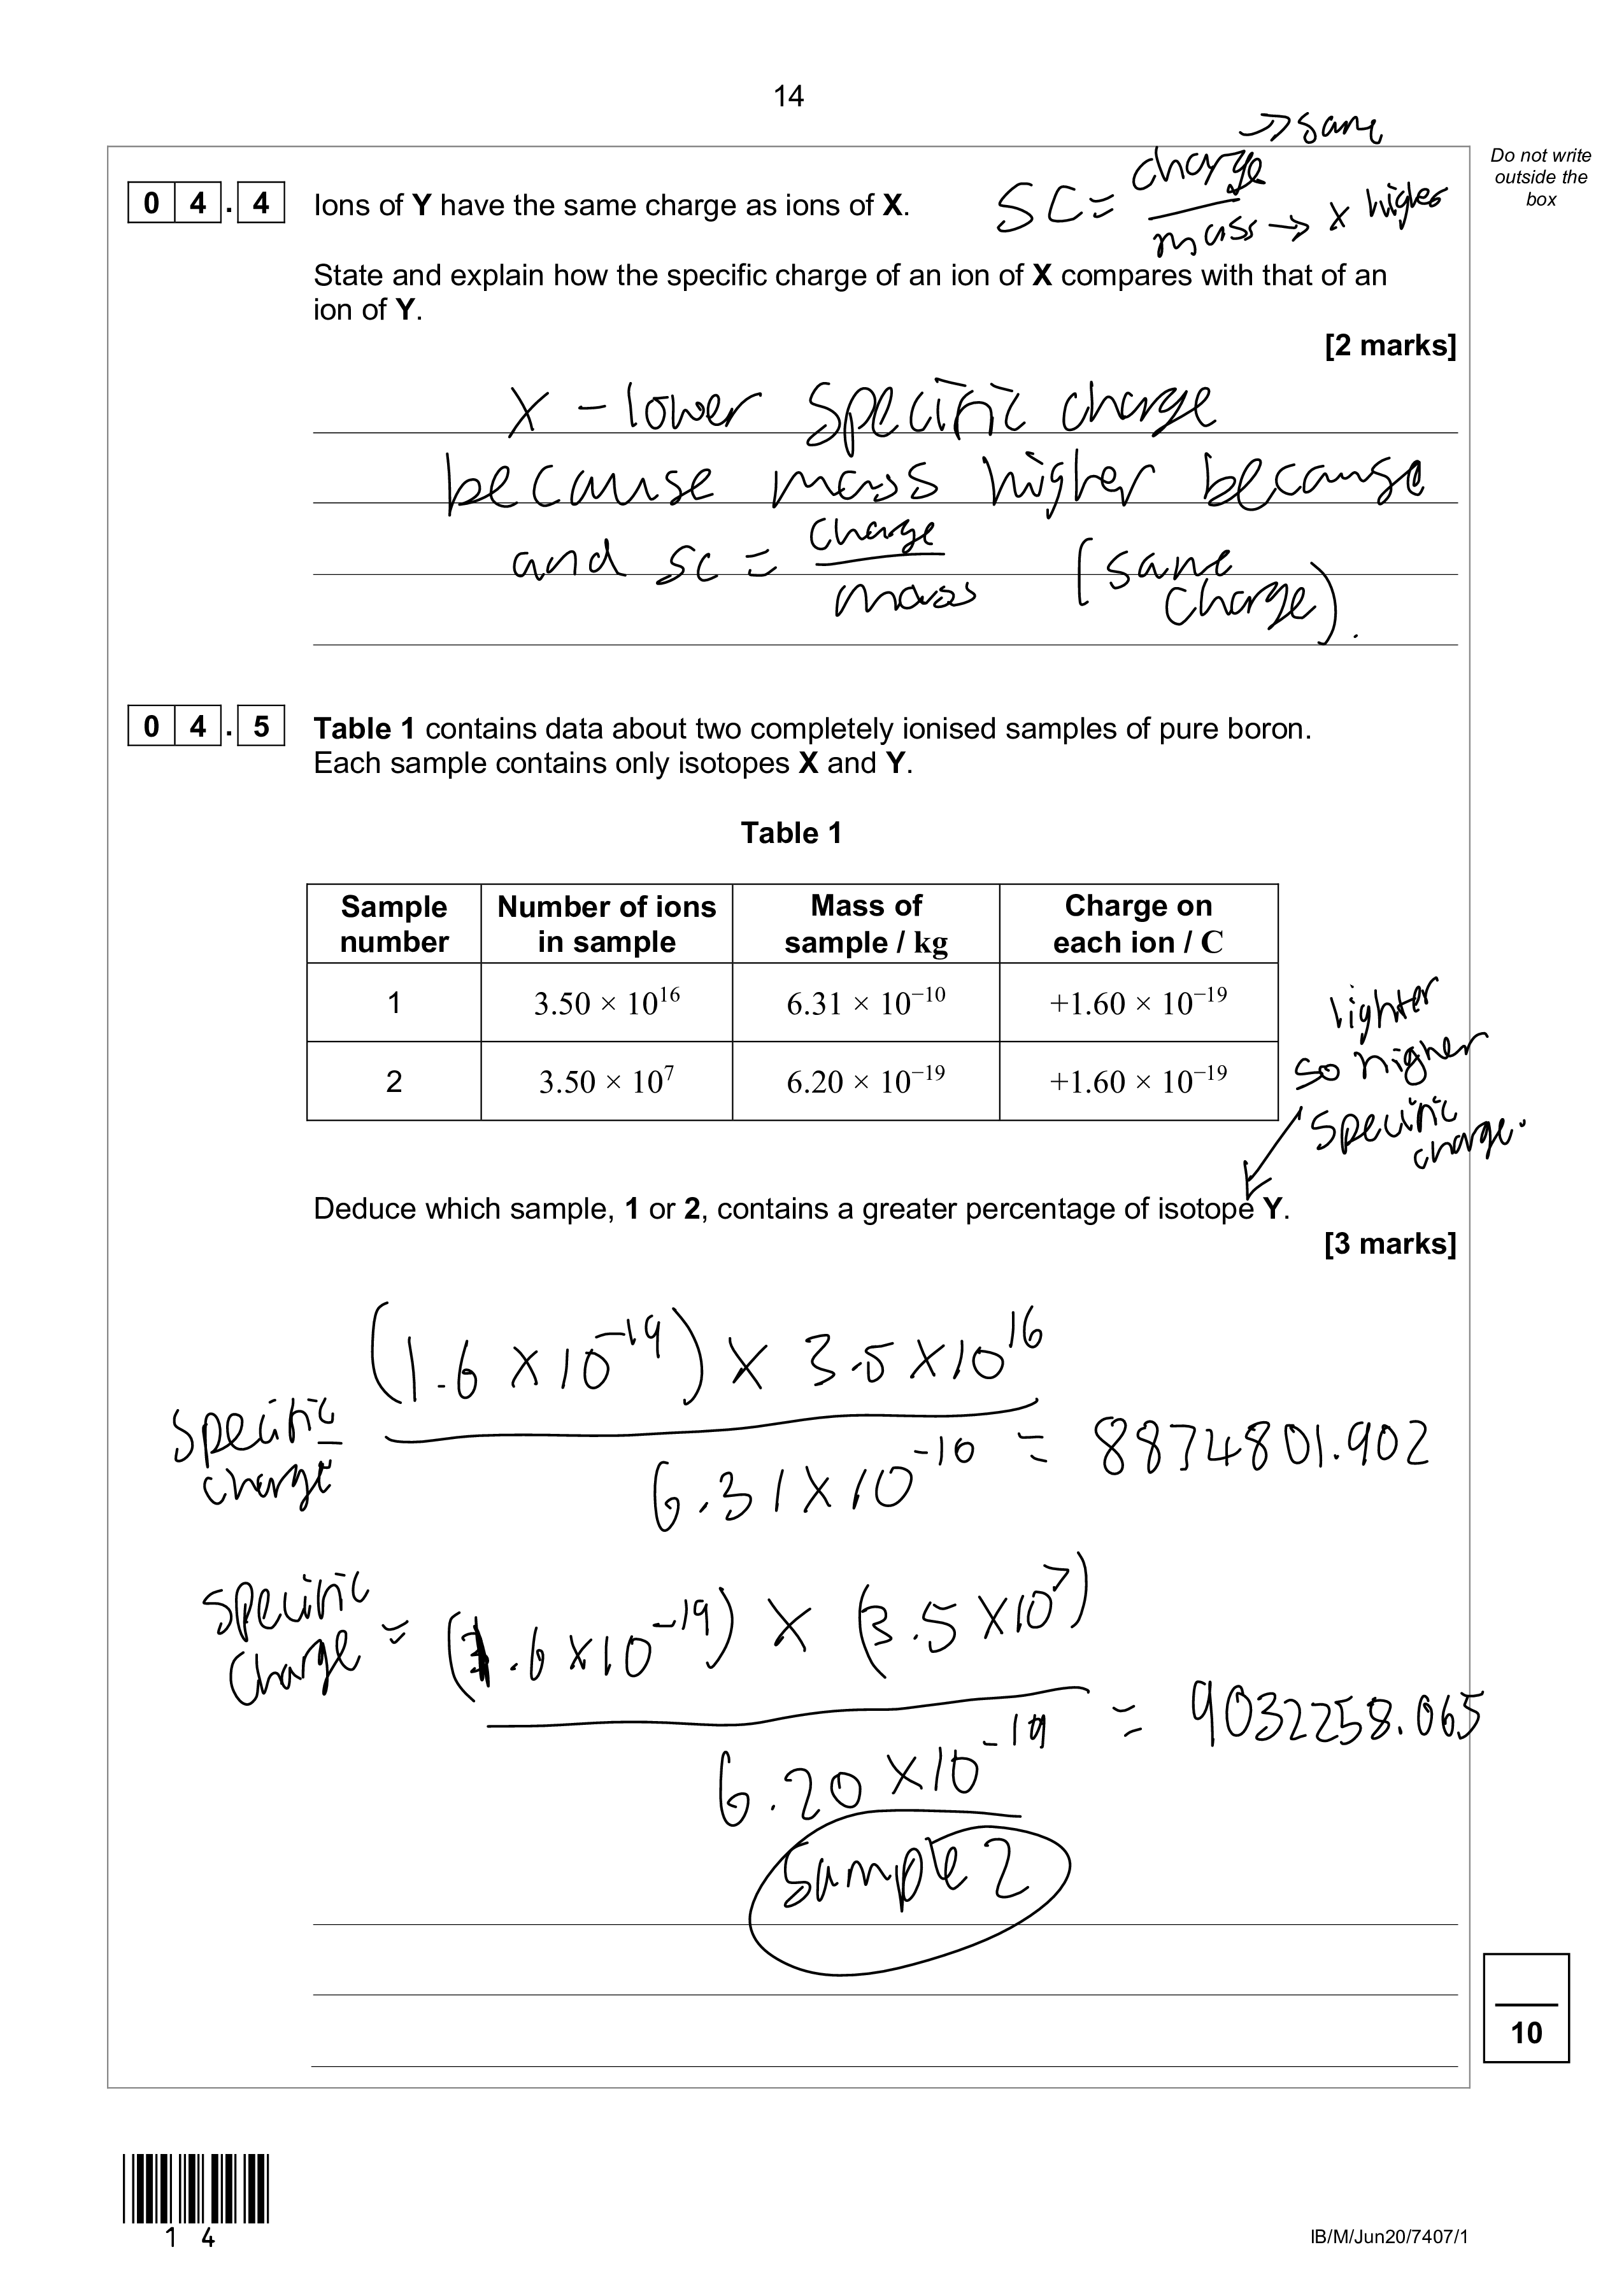 14
Do not write
outside the
box
→ same
SC = charge / mass → x higher
0 4 . 4 Ions of Y have the same charge as ions of X.
State and explain how the specific charge of an ion of X compares with that of an
ion of Y.
[2 marks]
X – lower specific charge
because mass higher because
and SC = charge / mass (same charge).
0 4 . 5 Table 1 contains data about two completely ionised samples of pure boron.
Each sample contains only isotopes X and Y.
Table 1
Sample number Number of ions in sample Mass of sample / kg Charge on each ion / C
1 3.50 × 10¹⁶ 6.31 × 10⁻¹⁰ +1.60 × 10⁻¹⁹
2 3.50 × 10⁷ 6.20 × 10⁻¹⁹ +1.60 × 10⁻¹⁹
lighter
so higher
specific
charge.
Deduce which sample, 1 or 2, contains a greater percentage of isotope Y.
[3 marks]
specific charge = (1.6 × 10⁻¹⁹) × 3.5 × 10¹⁶ / 6.31 × 10⁻¹⁰ = 8874801.902
specific charge = (1.6 × 10⁻¹⁹) × (3.5 × 10⁷) / 6.20 × 10⁻¹⁹ = 9032258.065
sample 2
10
1 4
IB/M/Jun20/7407/1